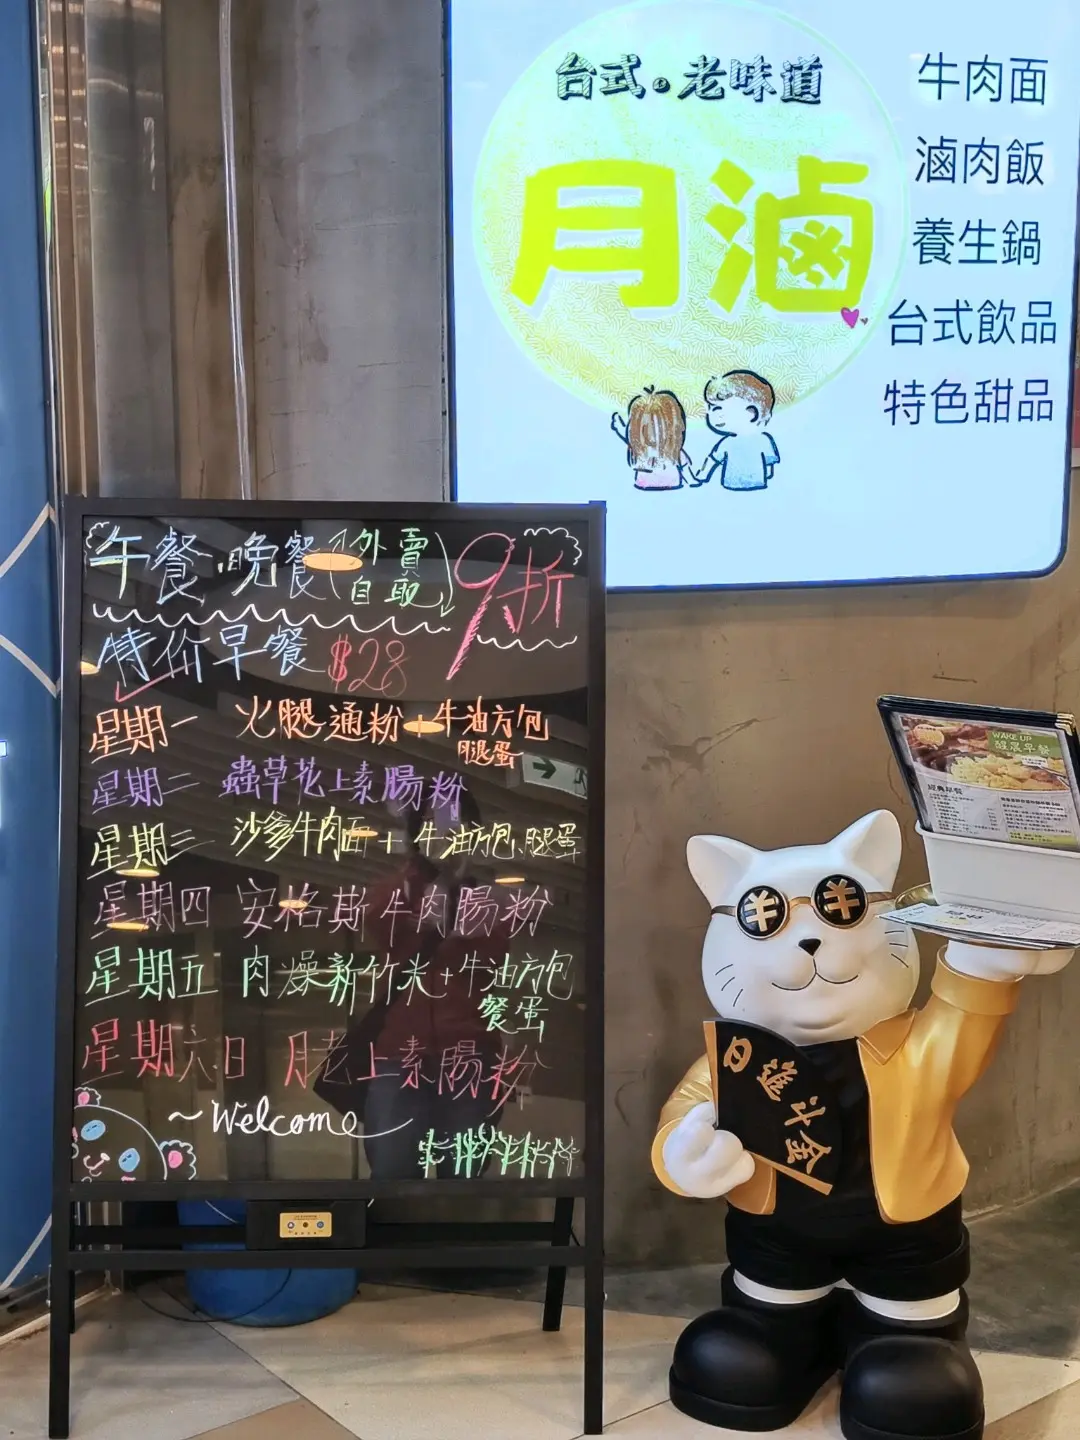 台式·老味道
月滷
牛肉面
滷肉飯
養生鍋
台式飲品
特色甜品
午餐·晚餐(外賣自取)9折
特价早餐 $28
星期一 火腿通粉+牛油方包
腿蛋
星期二 蟲草花上素腸粉
星期三 沙爹牛肉面+牛油方包、腿蛋
星期四 安格斯牛肉腸粉
星期五 肉燥新竹米+牛油方包
餐蛋
星期六.日 月老上素腸粉
~Welcome
WAKE UP
醒晨早餐
經典早餐
日進斗金